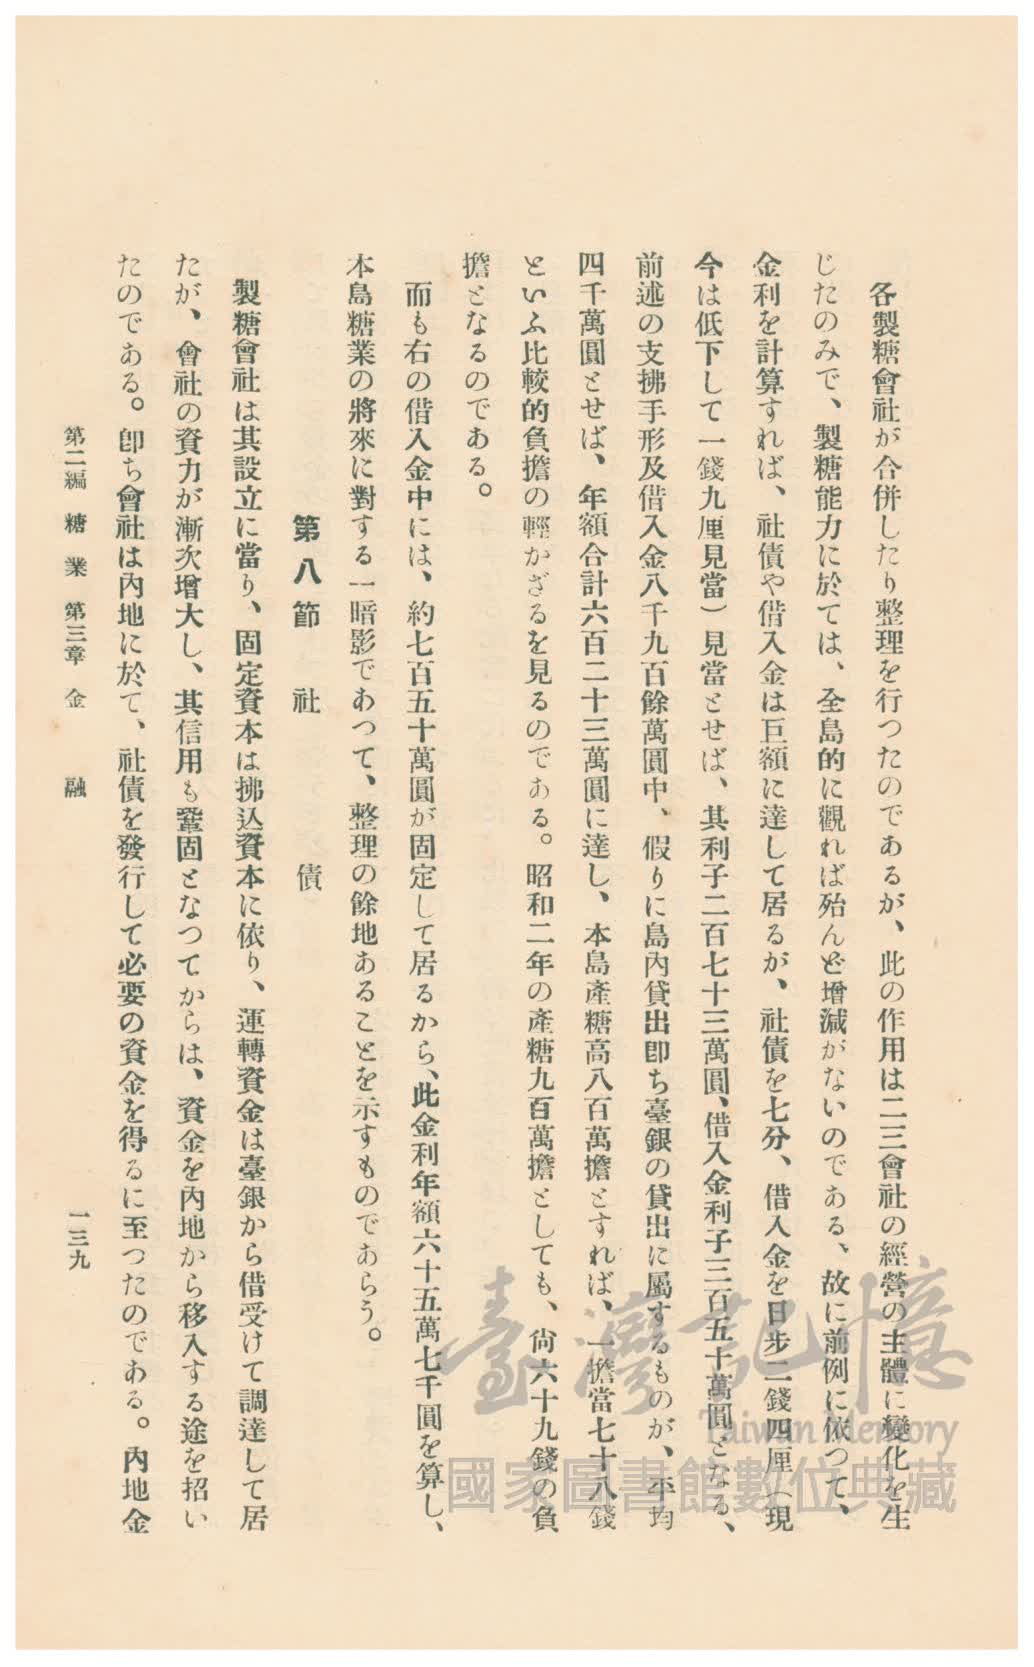 各製糖會社が合併したり整理を行つたのであるが、此の作用は二三會社の經營の主體に變化を生
じたのみで、製糖能力に於ては、全島的に觀れば殆んど增減がないのである、故に前例に依つて、
金利を計算すれば、社債や借入金は巨額に達して居るが、社債を七分、借入金を日步二錢四厘（現
今は低下して一錢九厘見當）見當とせば、其利子二百七十三萬圓、借入金利子三百五十萬圓となる、
前述の支拂手形及借入金八千九百餘萬圓中、假りに島內貸出卽ち臺銀の貸出に屬するものが、平均
四千萬圓とせば、年額合計六百二十三萬圓に達し、本島產糖高八百萬擔とすれば、一擔當七十八錢
といふ比較的負擔の輕かざるを見るのである。昭和二年の產糖九百萬擔としても、尙六十九錢の負
擔となるのである。
而も右の借入金中には、約七百五十萬圓が固定して居るから、此金利年額六十五萬七千圓を算し、
本島糖業の將來に對する一暗影であつて、整理の餘地あることを示すものであらう。
第八節　社　債
製糖會社は其設立に當り、固定資本は拂込資本に依り、運轉資金は臺銀から借受けて調達して居
たが、會社の資力が漸次增大し、其信用も鞏固となつてからは、資金を內地から移入する途を招い
たのである。卽ち會社は內地に於て、社債を發行して必要の資金を得るに至つたのである。內地金
第二編　糖業　第三章　金融
一三九
臺灣記憶
Taiwan Memory
國家圖書館數位典藏